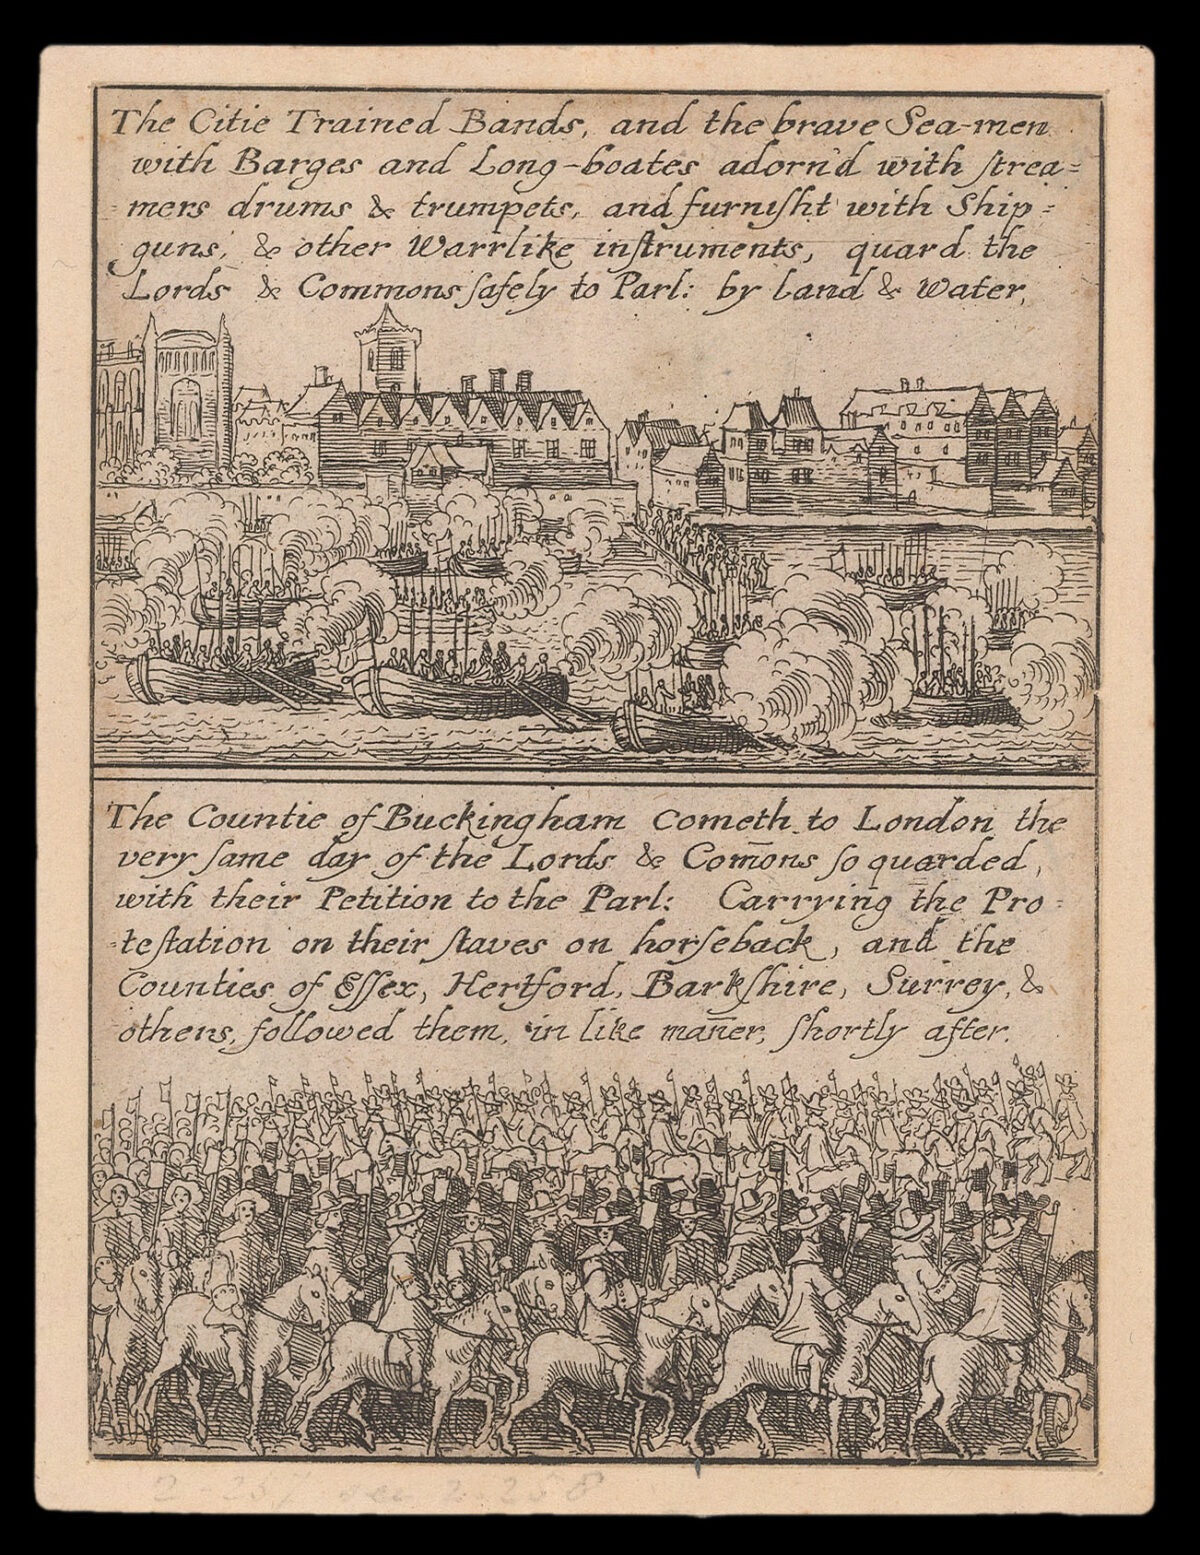 The Citie Trained Bands, and the brave Sea-men
with Barges and Long-boates adorn'd with ſtrea=
=mers drums & trumpets, and furniſht with Ship=
guns, & other Warrlike inſtruments, quard the
Lords & Commons ſafely to Parl: by land & water,
The Countie of Buckingham cometh to London the
very ſame day of the Lords & Com̄ons ſo quarded,
with their Petition to the Parl: Carrying the Pro=
=teſtation on their ſtaves on horſeback, and the
Counties of Eſſex, Hertford, Barkſhire, Surrey, &
others, followed them, in like man̄er, ſhortly after.